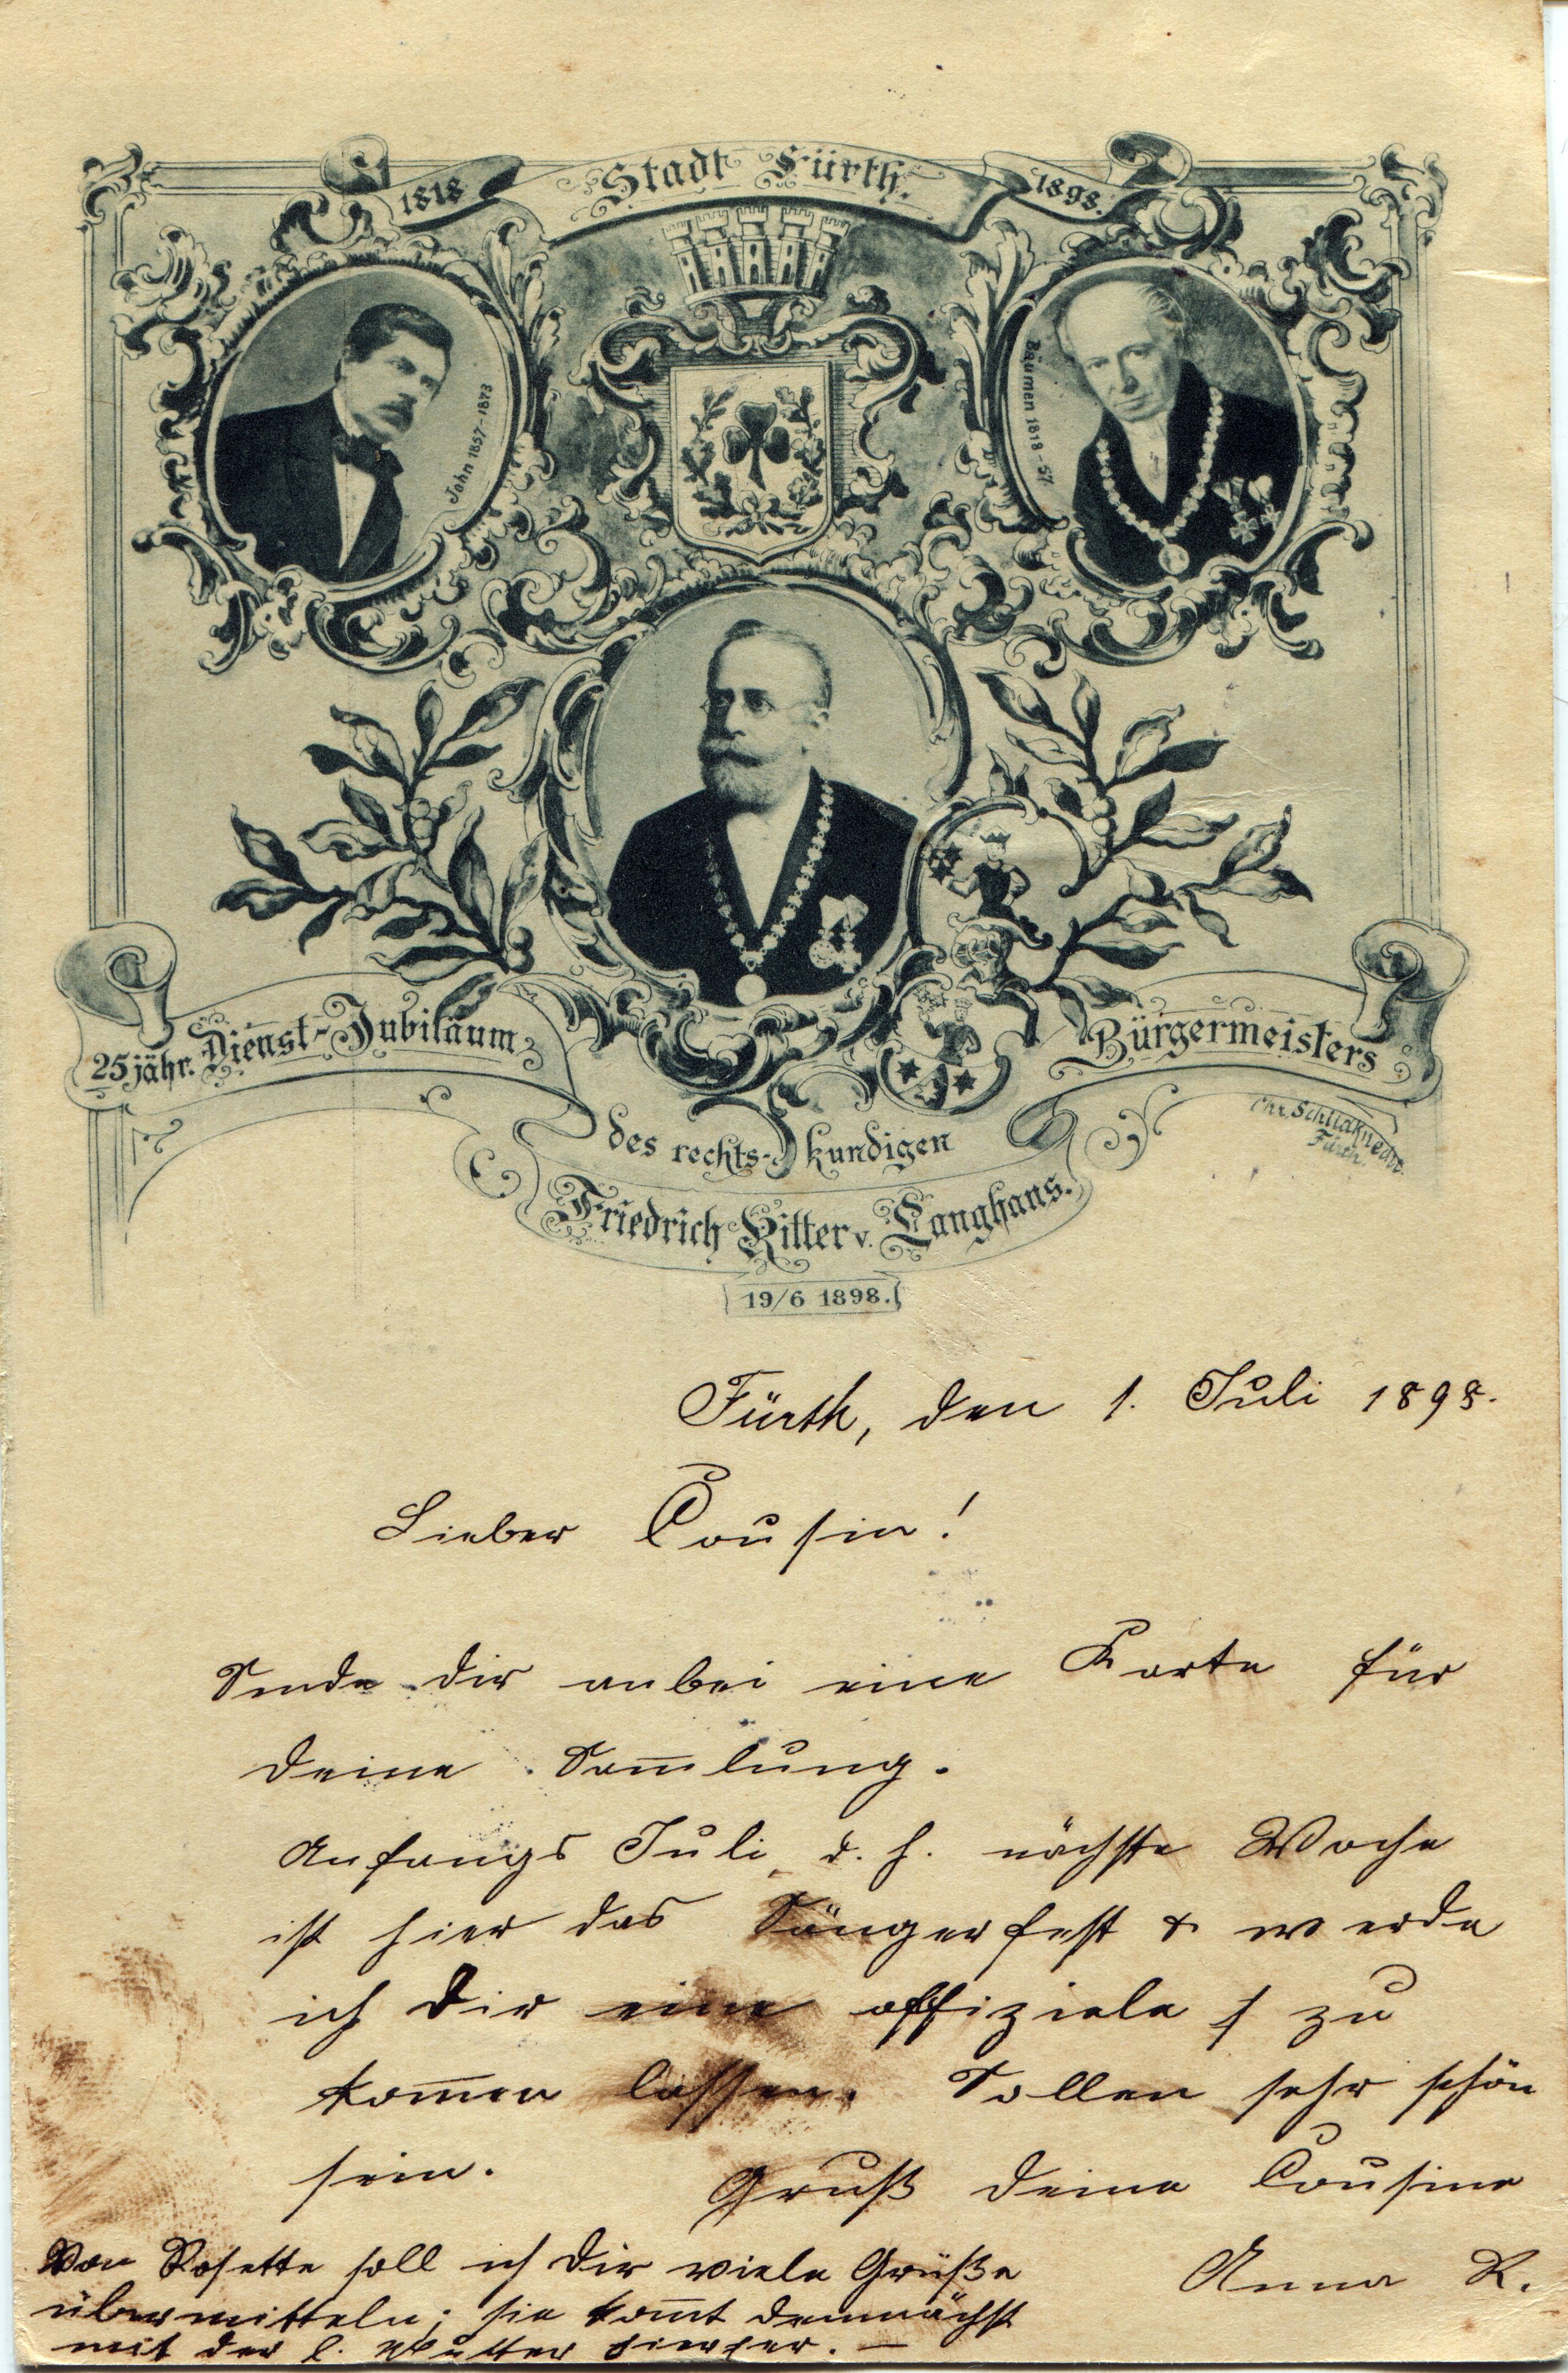 1818 Stadt Fürth. 1898.
John 1857-1873
Bäumen 1818-57
25jähr. Dienst-Jubiläum
des rechts-kundigen
Bürgermeisters
Friedrich Ritter v. Langhans.
19/6 1898.
Fürth.
Fürth, den 1. Juli 1898.
Lieber Cousin!
Sende dir anbei eine Karte für
deine Sam̅lung.
Anfangs Juli, d. h. nächste Woche
ist hier das Sängerfest & werde
ich Dir eine offiziele zu
kom̅en lassen. Sollen sehr schön
sein.
Gruß deine Cousine
Anna R.
Von Rosette soll ich dir viele Grüße
übermitteln; sie kom̅t demnächst
mit der l. Mutter hierher. —